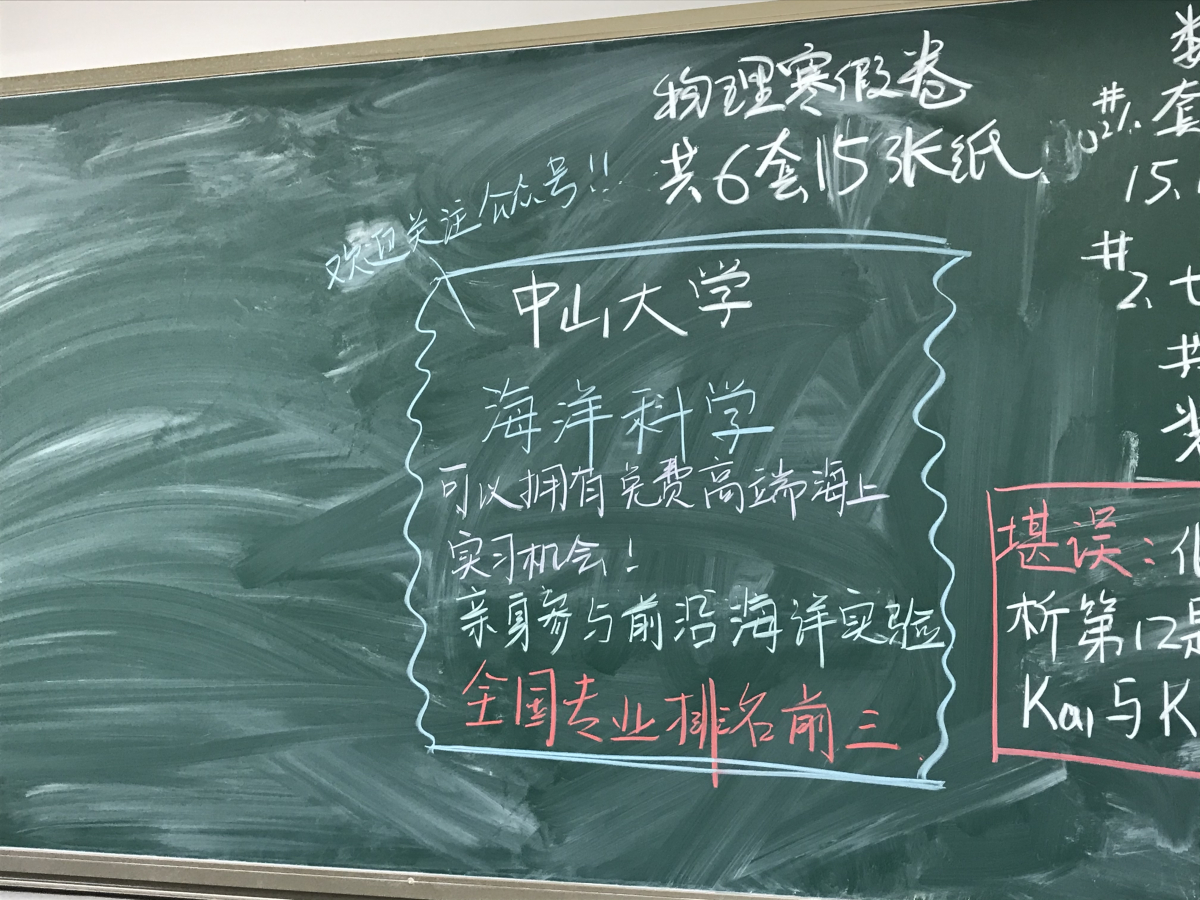 物理寒假卷
共6套15张纸
欢迎关注公众号!!
中山大学
海洋科学
可以拥有免费高端海上
实习机会!
亲身参与前沿海洋实验
全国专业排名前三
#
套
15.
#
2.
堪误:
析第12题
Ka1与K